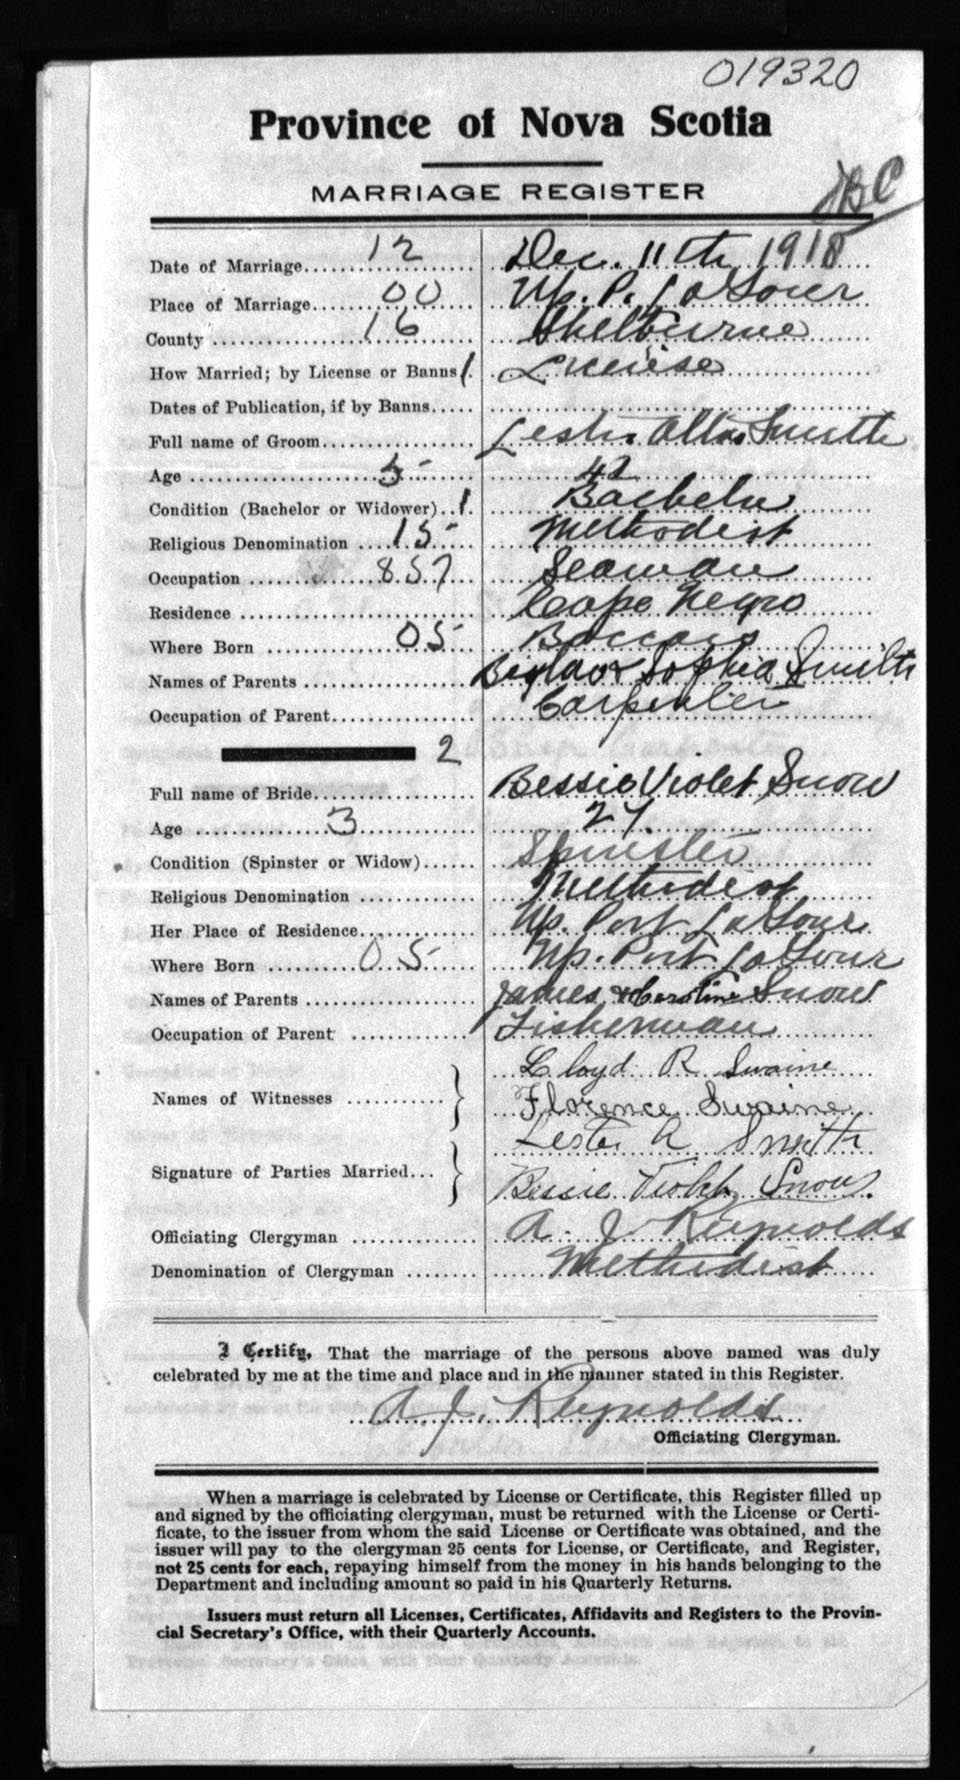 019320
Province of Nova Scotia
MARRIAGE REGISTER
Date of Marriage 12 Dec. 11th 1918
Place of Marriage 00 Up. P. La Tour
County 16 Shelburne
How Married; by License or Banns 1 License
Dates of Publication, if by Banns
Full name of Groom Smith
Age 5 42
Condition (Bachelor or Widower) 1 Bachelor
Religious Denomination 15 Methodist
Occupation 857 Seaman
Residence Cape Negro
Where Born 05 Baccaro
Names of Parents Sophia Smith
Occupation of Parent Carpenter
2
Full name of Bride Bessie Violet Snow
Age 3 27
Condition (Spinster or Widow) Spinster
Religious Denomination Methodist
Her Place of Residence Up. Port La Tour
Where Born 05 Up. Port La Tour
Names of Parents James & Caroline Snow
Occupation of Parent Fisherman
Names of Witnesses Lloyd R Swaine
Florence Swaine
Signature of Parties Married Lester A Smith
Bessie Violet Snow
Officiating Clergyman A. J. Reynolds
Denomination of Clergyman Methodist
I Certify, That the marriage of the persons above named was duly
celebrated by me at the time and place and in the manner stated in this Register.
A. J. Reynolds
Officiating Clergyman.
When a marriage is celebrated by License or Certificate, this Register filled up
and signed by the officiating clergyman, must be returned with the License or Certi-
ficate, to the issuer from whom the said License or Certificate was obtained, and the
issuer will pay to the clergyman 25 cents for License, or Certificate, and Register,
not 25 cents for each, repaying himself from the money in his hands belonging to the
Department and including amount so paid in his Quarterly Returns.
Issuers must return all Licenses, Certificates, Affidavits and Registers to the Provin-
cial Secretary's Office, with their Quarterly Accounts.